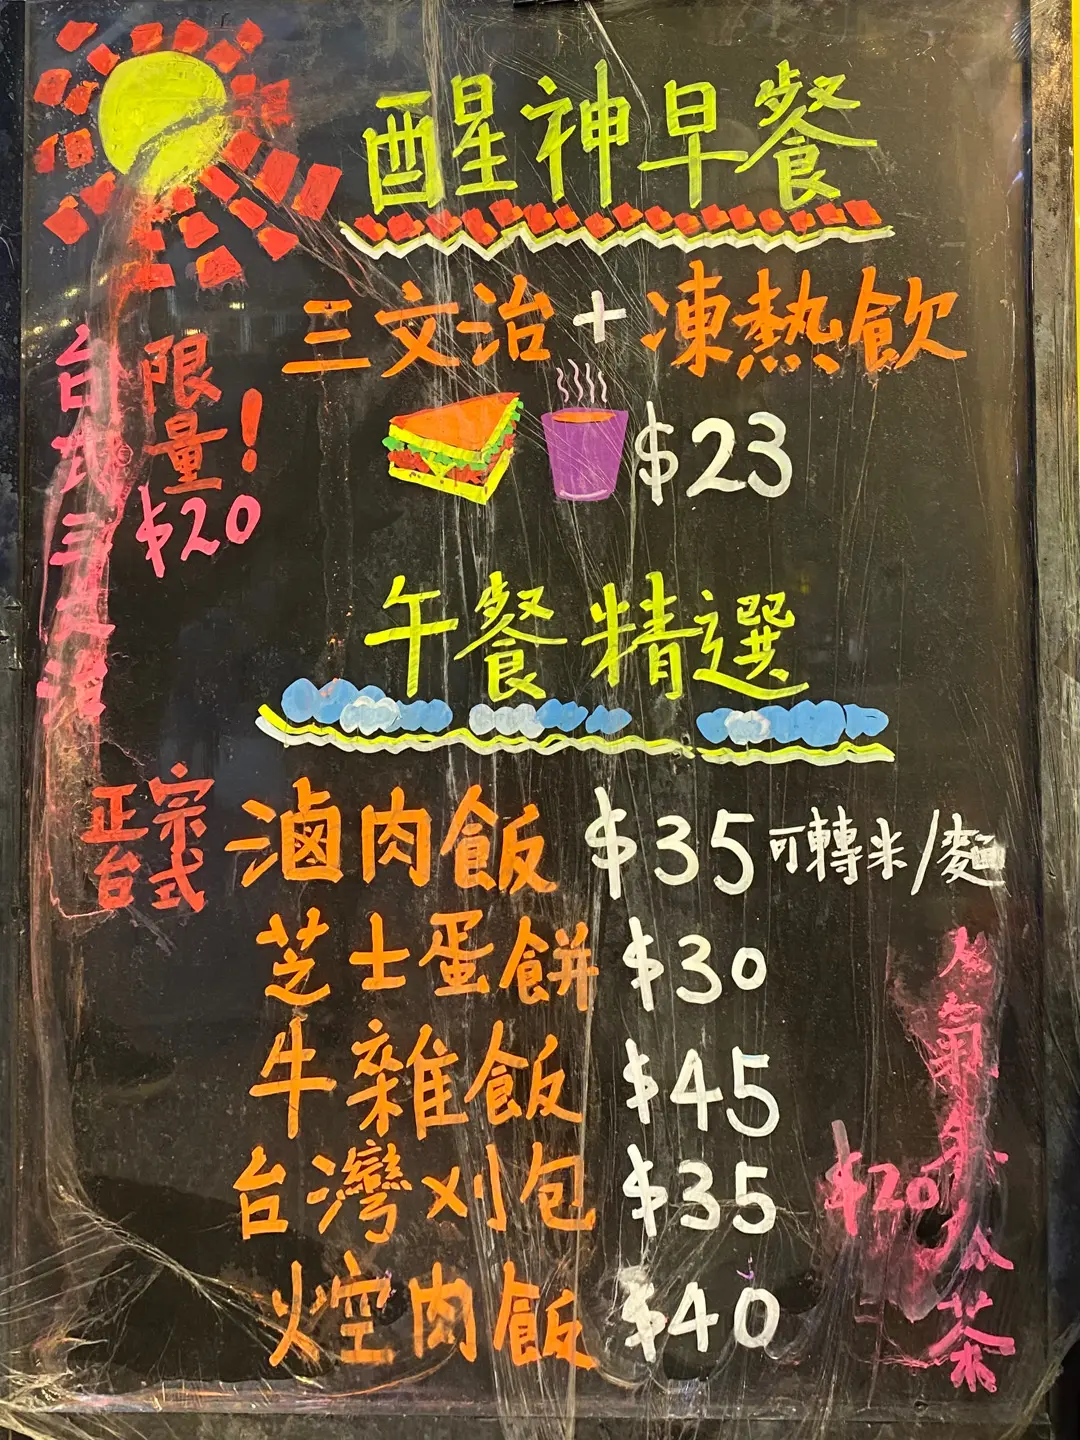 醒神早餐
三文治+凍熱飲
$23
台式三文治
限量!
$20
午餐精選
正宗
台式
滷肉飯 $35 可轉米/麵
芝士蛋餅 $30
牛雜飯 $45
台灣刈包 $35
焢肉飯 $40
人氣
茶
$20